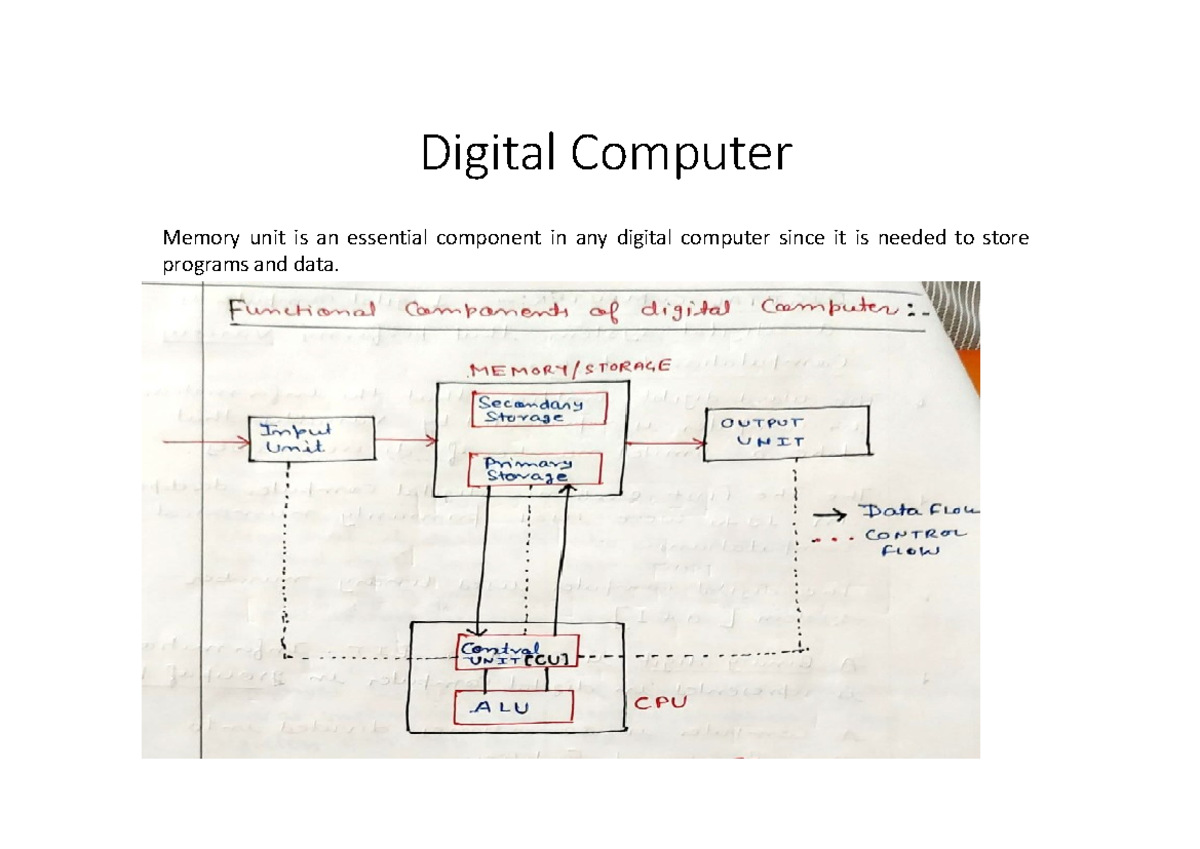 Digital Computer
Memory unit is an essential component in any digital computer since it is needed to store
programs and data.
Functional Components of digital Coomputer:-
MEMORY/STORAGE
Secondary
Storage
Input
Unit
OUTPUT
UNIT
Primary
Storage
Data Flow
CONTROL
FLOW
Control
UNIT[CU]
ALU
CPU